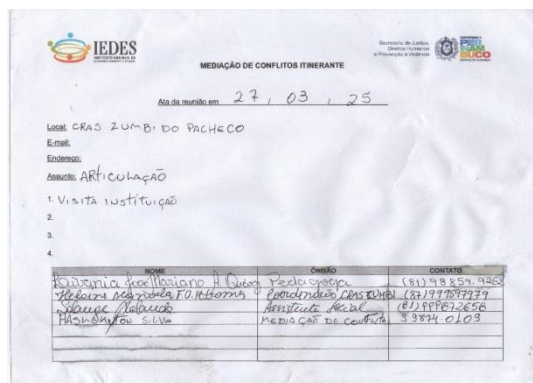 IEDES
Secretaria de Justiça,
Direitos Humanos
e Prevenção à Violência
PER
NAM
BUCO
MEDIAÇÃO DE CONFLITOS ITINERANTE
Ata da reunião em 27, 03, 25
Local: CRAS ZUMBI DO PACHECO
E-mail:
Endereço:
Assunto: ARTICULAÇÃO
1. VISITA INSTITUIÇÃO
2.
3.
4.
NOME ÓRGÃO CONTATO
José Mariano A. Pedagoga (81) 98859.9263
Coordenação CRAS ZUMBI
Solange Assistente Social
SILVA MEDIAÇÃO DE CONFLITO 99874.0103